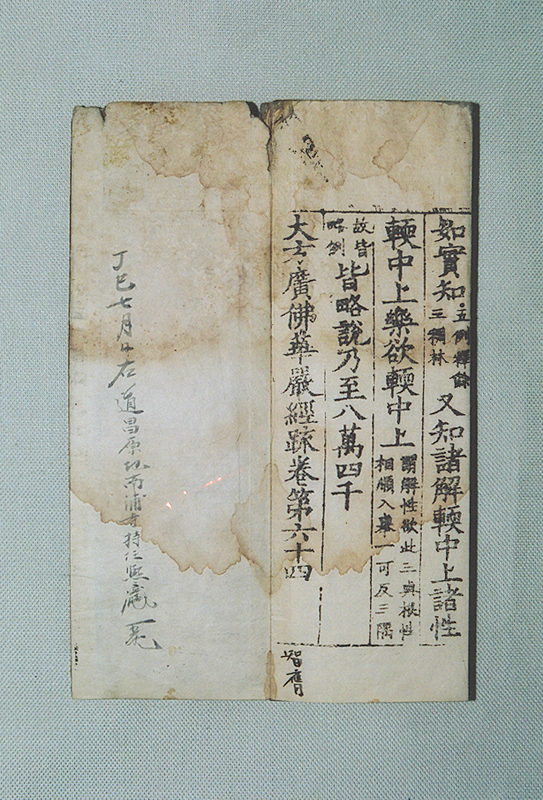 如實知五例釋餘三稠林又知諸解輭中上諸性
輭中上樂欲輭中上謂解性欲此三與根性相順入舉一可反三隅
故皆略例皆略說乃至八萬四千
大方廣佛華嚴經䟽卷第六十四
智
丁巳七月日右道昌原地